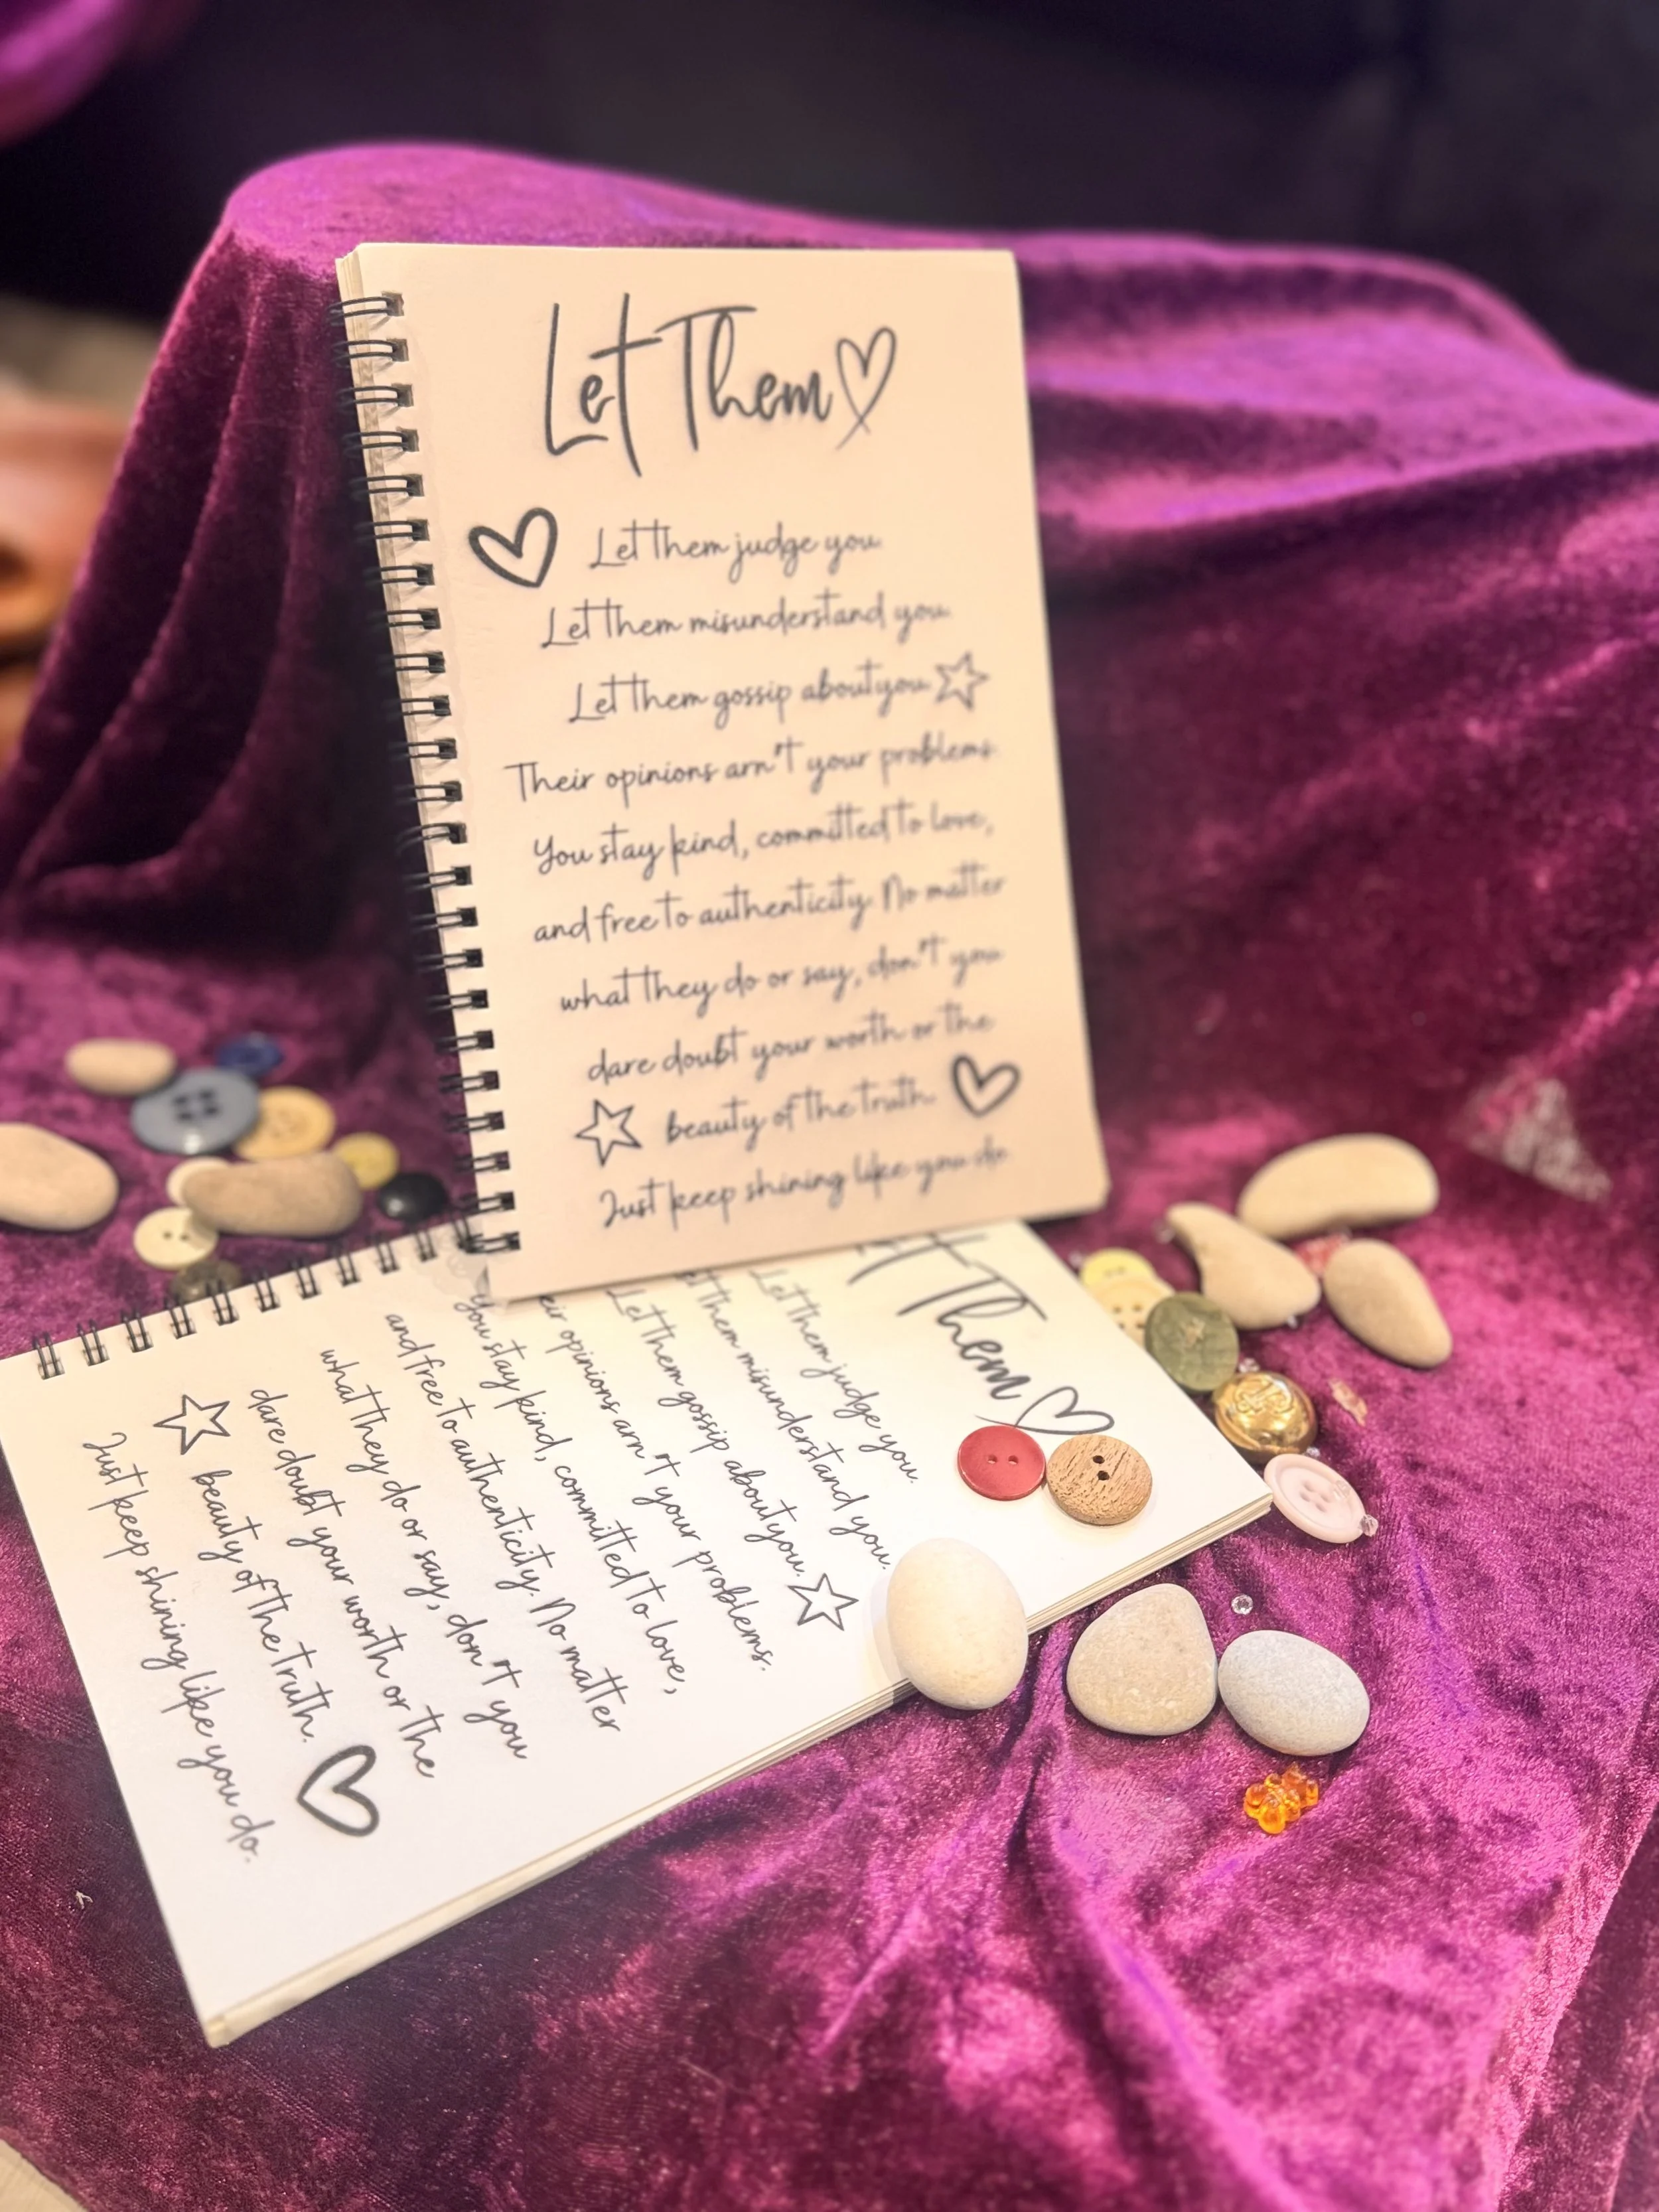 Let Them
Let them judge you.
Let them misunderstand you.
Let them gossip about you.
Their opinions arn't your problems.
You stay kind, committed to love,
and free to authenticity. No matter
what they do or say, don't you
dare doubt your worth or the
beauty of the truth.
Just keep shining like you do.
Them
Let them judge you.
them misunderstand you.
Let them gossip about you.
opinions arn't your problems.
You stay kind, committed to love,
and free to authenticity. No matter
what they do or say, don't you
dare doubt your worth or the
beauty of the truth.
Just keep shining like you do.